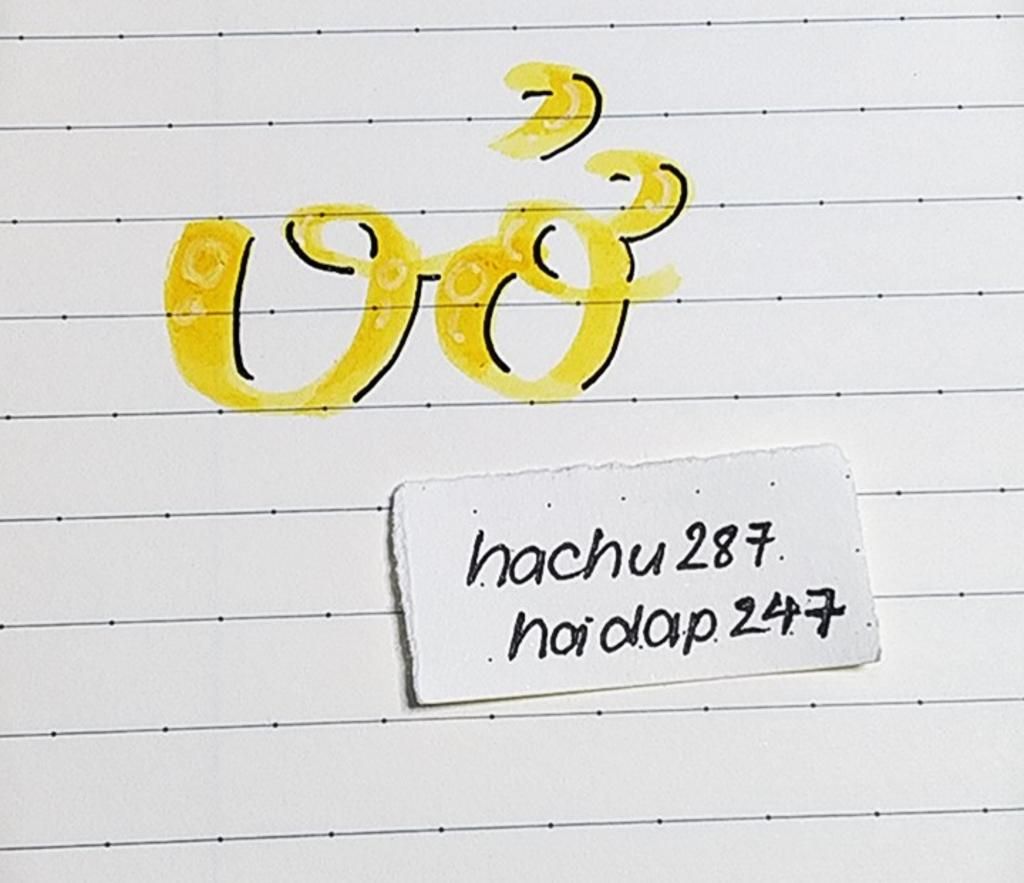 vở
hachu287
hoidap247